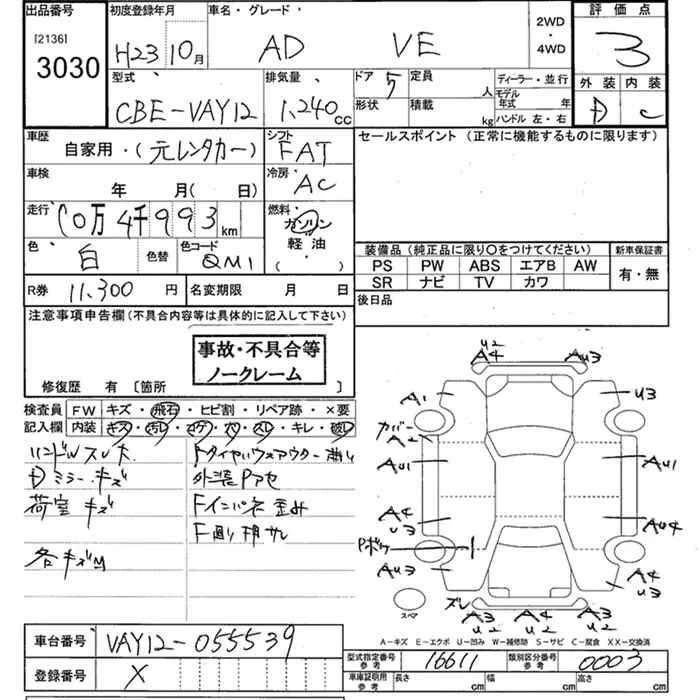 出品番号 初度登録年月 車名・グレード 2WD・4WD 評価点
[2136]
3030 H23 10月 AD VE 3
型式 排気量 ドア 5 定員 人 ディーラー・並行 外装 内装
CBE-VAY12 1,240cc 形状 積載 kg モデル年式 年 D C
ハンドル 左・右
車歴 シフト セールスポイント (正常に機能するものに限ります)
自家用・(元レンタカー) FAT
車検 冷房
年 月( 日) AC
走行 燃料
10万4千993km ガソリン
色 白 色替 色コード QM1 軽油
・( )
装備品 (純正品に限り○をつけてください) 新車保証書
PS PW ABS エアB AW 有・無
SR ナビ TV カワ
R券 11,300円 名変期限 月 日 後日品
注意事項申告欄(不具合内容等は具体的に記入して下さい)
事故・不具合等
ノークレーム
修復歴 有〔箇所 〕
検査員 FW キズ・飛石・ヒビ割・リペア跡・×要
記入欄 内装 キズ・汚レ・コゲ・穴・スレ・キレ・破レ
ハンドルスレ大
Dミラーキズ 外装Pアセ
荷室キズ Fインパネ歪み
各キズM
U2
A4 AU3
A1 U3
カバー
A2
AU1 AU1
A4
U3 AU4
Pボケ
AU3 A4
U3
スペア ズレ A3
U2 A4
U2 A3
U2
A-キズ E-エクボ U-凹み W-補修跡 S-サビ C-腐食 XX-交換済
車台番号 VAY12-055539
登録番号 X
型式指定番号 参考 16611 類別区分番号 参考 0003
車庫証明用 参考 長さ cm 幅 cm 高さ cm